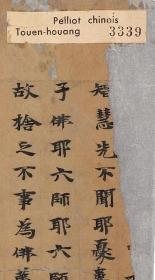 Pelliot chinois
Touen-houang 3339
智慧光不聞耶憂
于佛耶六師耶六師
故捨之不事為佛